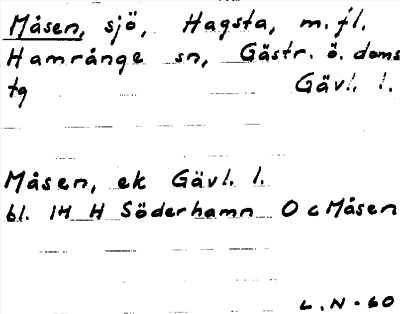 Måsen, sjö, Hagsta, m.fl.
Hamrånge sn, Gästr. ö. doms
tg Gävl. l.
Måsen, ek Gävl. l.
bl. 14 H Söderhamn O c Måsen
L.N-60